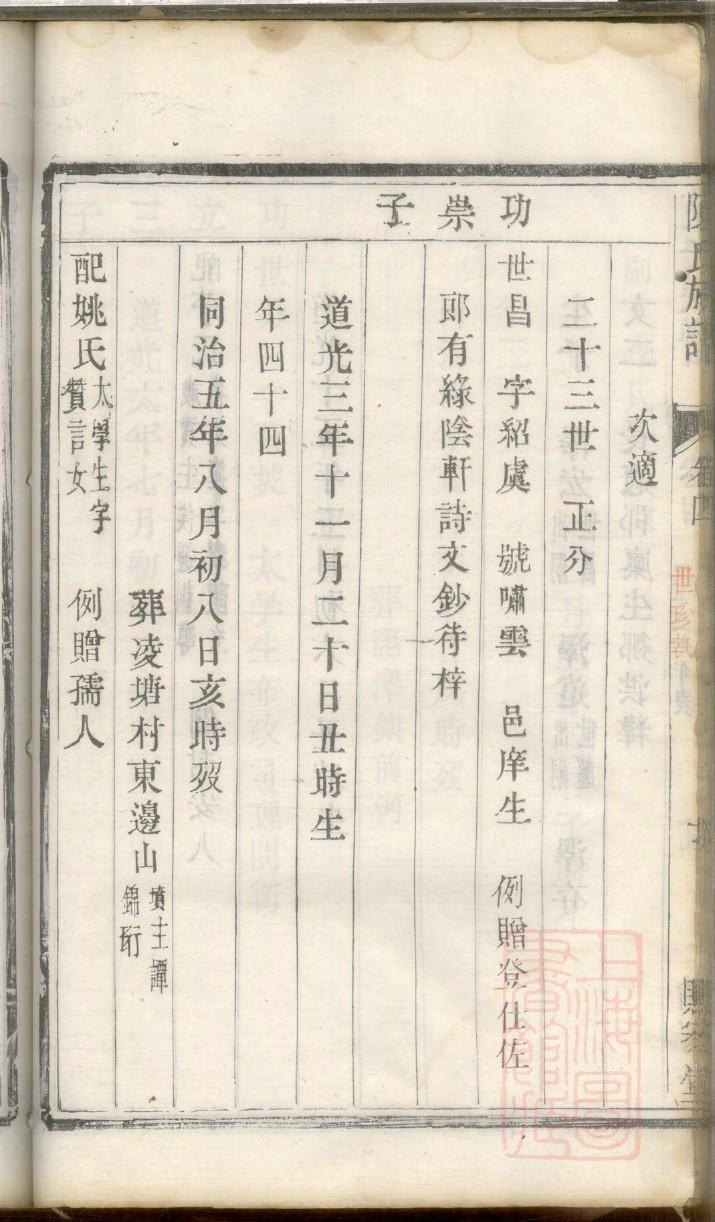 陳氏族譜 卷四
世珍執
次適
三十三世 正分
功崇子
世昌 字紹虞 號嘯雲 邑庠生 例贈登仕佐
郎有綠陰軒詩文鈔待梓
道光三年十一月二十日丑時生
年四十四
同治五年八月初八日亥時歿
葬凌塘村東邊山 墳主譚錦珩
配姚氏 太學生字贊言女 例贈孺人
上海圖書館藏